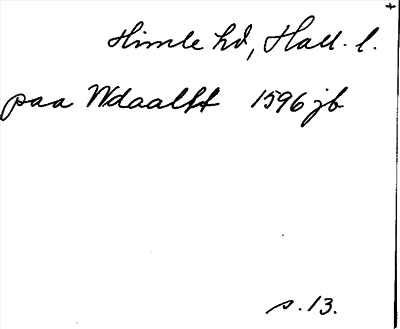 Himle hd, Hall. l.
paa Wdaaltt 1596 jb
s. 13.